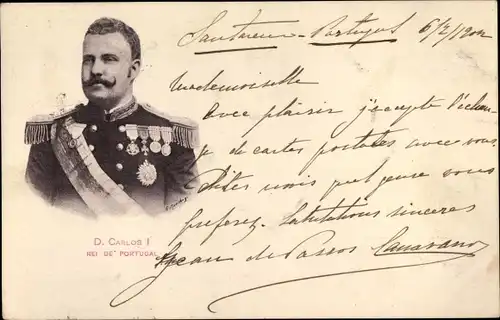 Santarem - Portugal 6/2/1902
Mademoiselle
Avec plaisir j'accepte l'échan-
je de cartes postales avec vous.
Dites mois quel genre vous
preferez. Salutations sinceres
Jean de Passos Canavarro
D. CARLOS I
REI DE PORTUGAL